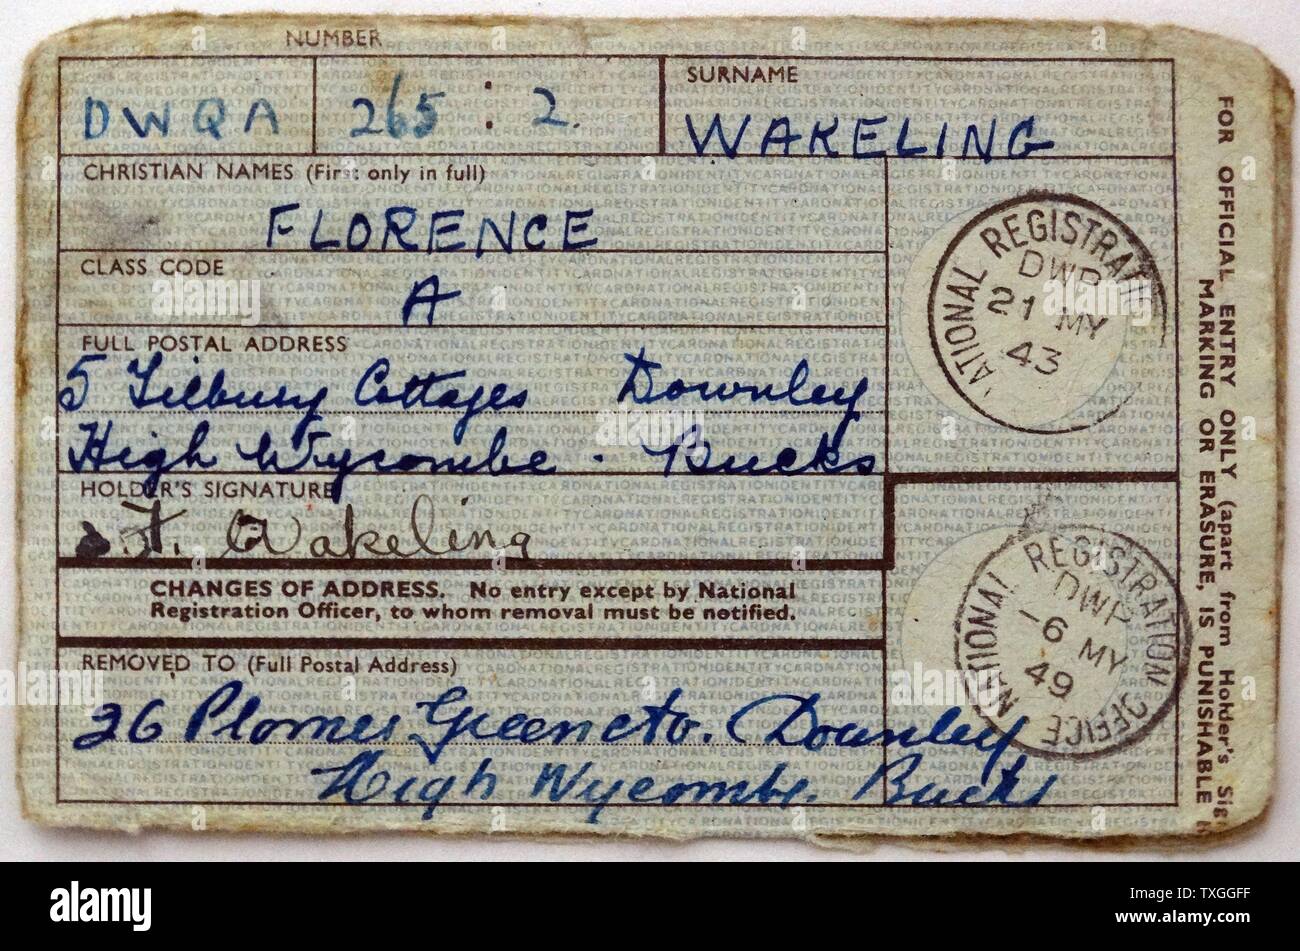 NUMBER
DWQA 265 : 2.
SURNAME
WAKELING
CHRISTIAN NAMES (First only in full)
FLORENCE
CLASS CODE
A
FULL POSTAL ADDRESS
5 Tilbury Cottages Downley
High Wycombe. Bucks
HOLDER'S SIGNATURE
F. Wakeling
CHANGES OF ADDRESS. No entry except by National
Registration Officer, to whom removal must be notified.
REMOVED TO (Full Postal Address)
26 Plomer Green Downley
High Wycombe. Bucks
NATIONAL REGISTRATION
DWP
21 MY
43
NATIONAL REGISTRATION OFFICE
DWP
-6 MY
49
FOR OFFICIAL ENTRY ONLY (apart from Holder's Sig
MARKING OR ERASURE, IS PUNISHABLE
alamy
alamy
Image ID: TXGGFF
www.alamy.com